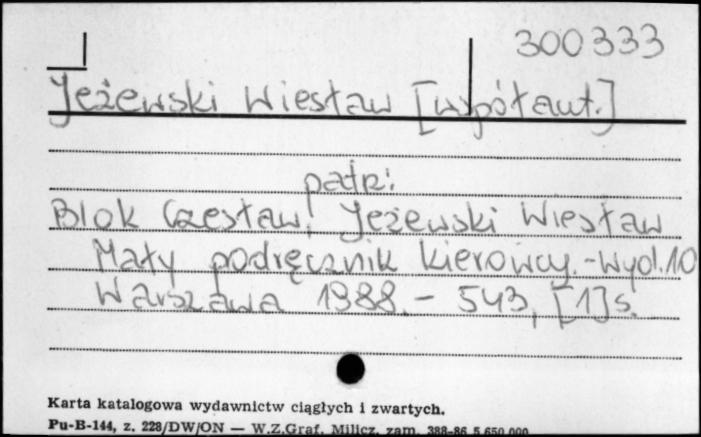 300333
Jeżewski Wiesław [współaut.]
patrz:
Blok Czesław, Jeżewski Wiesław
Mały podręcznik kierowcy.-Wyd.10
Warszawa 1988.- 543, [1]s.
Karta katalogowa wydawnictw ciągłych i zwartych.
Pu-B-144, z. 228/DW/ON — W.Z.Graf. Milicz, zam. 388-86 5.650.000